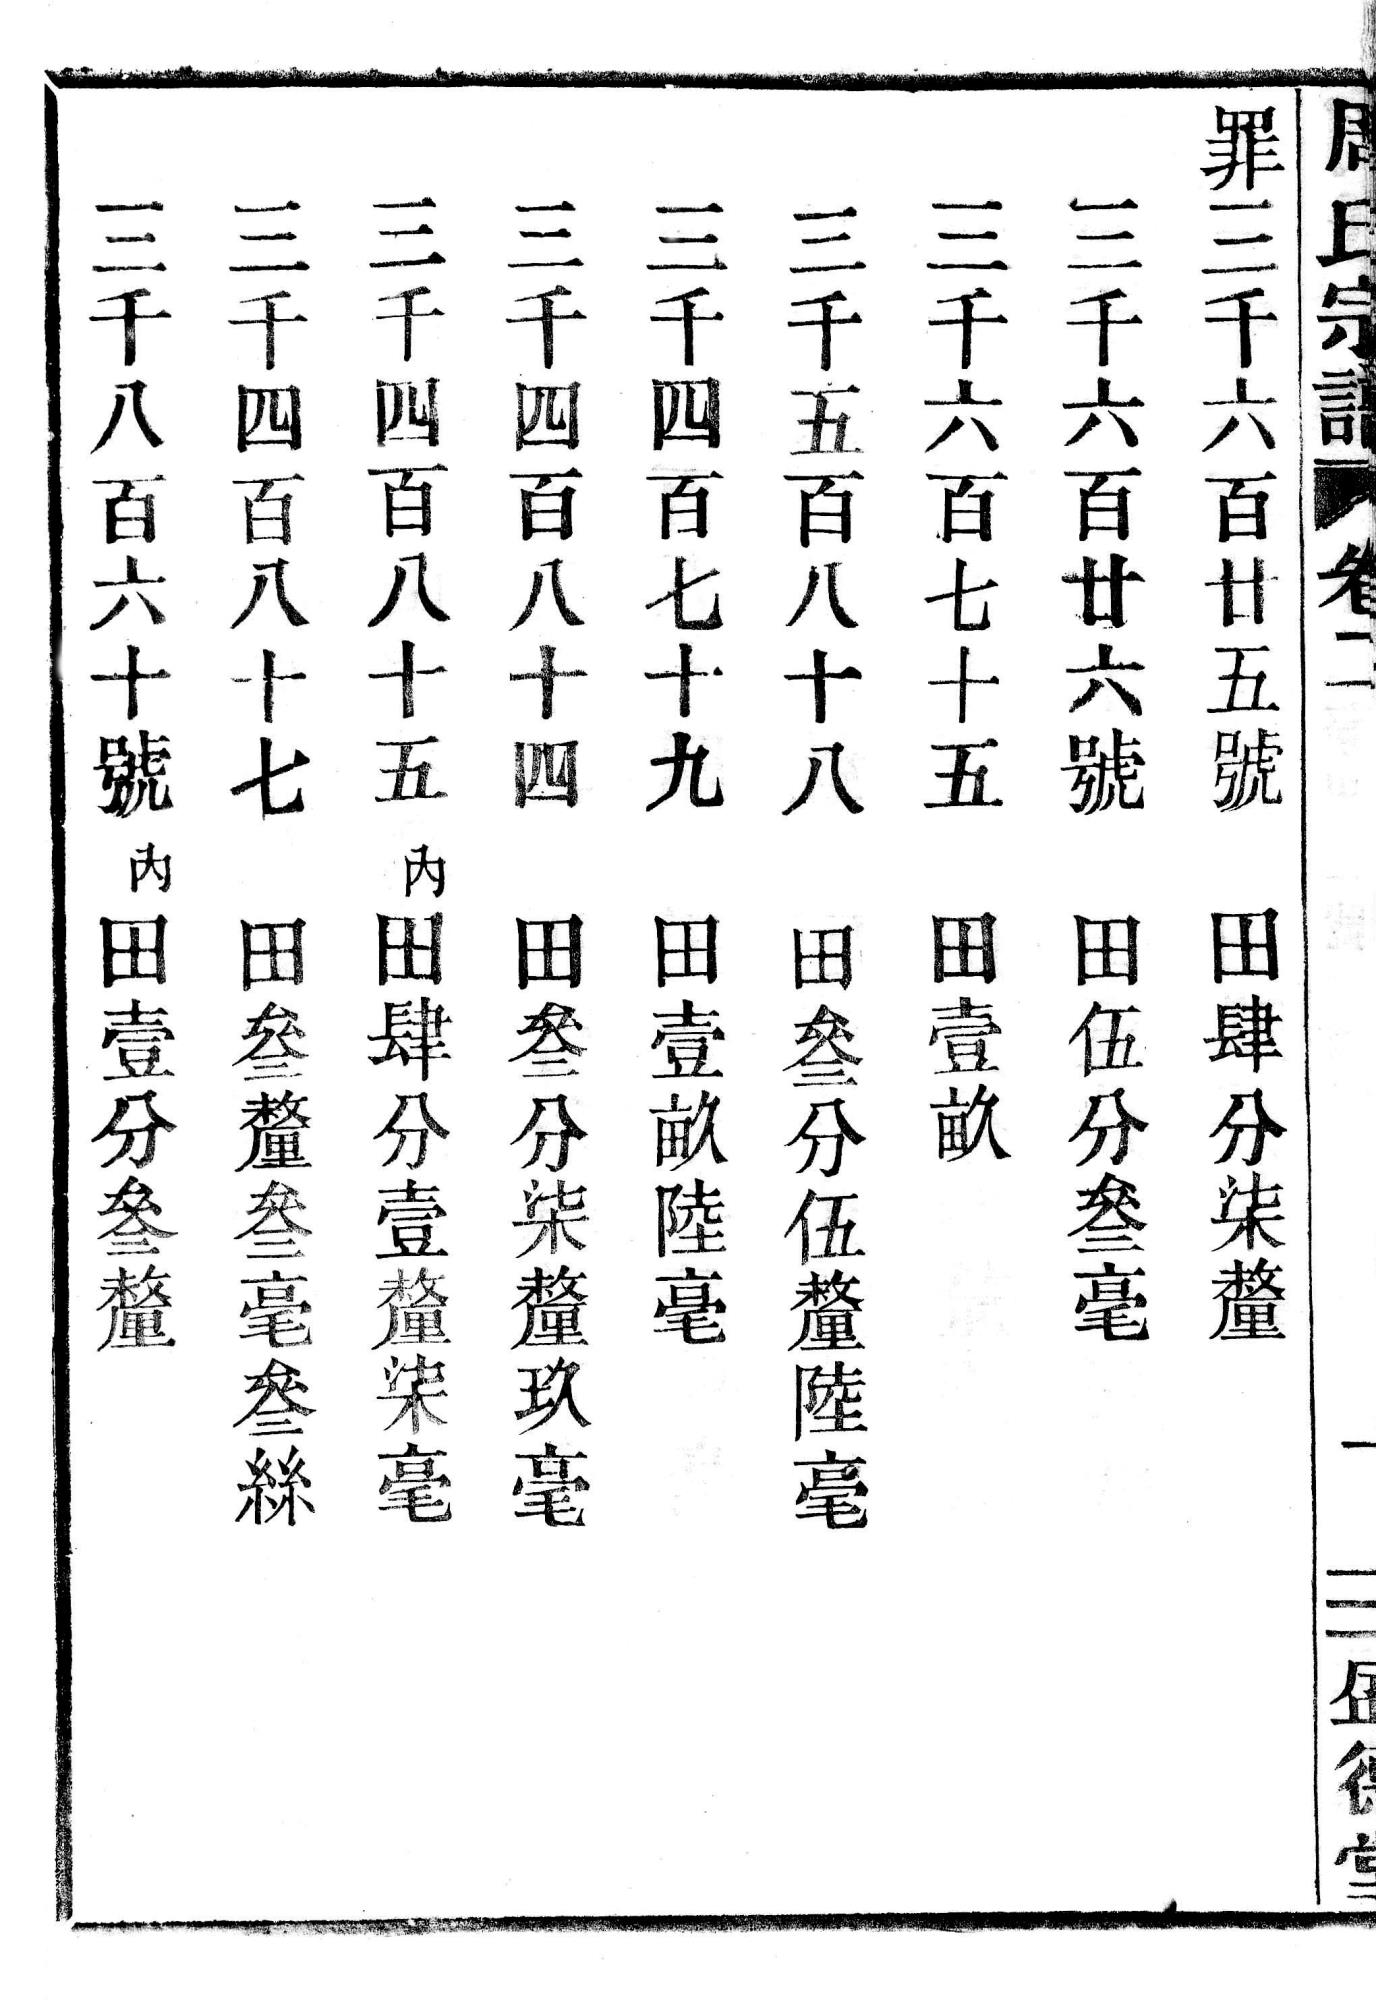 周氏宗譜 卷二 三 德堂
罪三千六百廿五號 田肆分柒釐
三千六百廿六號 田伍分叁毫
三千六百七十五 田壹畝
三千五百八十八 田叁分伍釐陸毫
三千四百七十九 田壹畝陸毫
三千四百八十四 田叁分柒釐玖毫
三千四百八十五 內田肆分壹釐柒毫
三千四百八十七 田叁釐叁毫叁絲
三千八百六十號 內田壹分叁釐